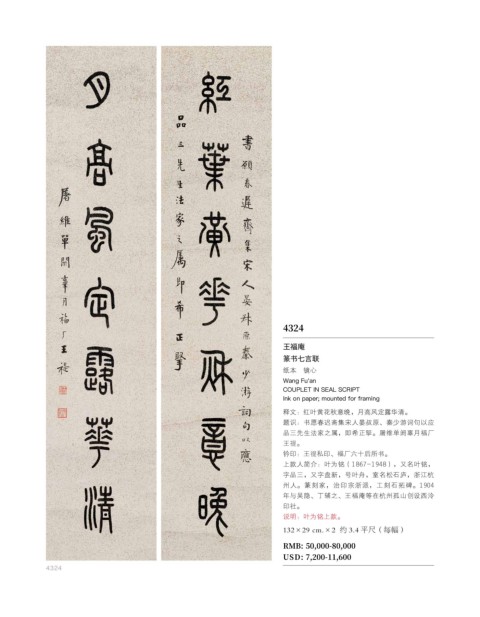 紅葉黃花秋意晚
書顧春遲齋集宋人晏殊原秦少游詞句以應
品三先生法家之屬即希正擘
月高風定露華清
屠維單閼辜月福厂王禔
4324
4324
王福庵
篆书七言联
纸本 镜心
Wang Fu'an
COUPLET IN SEAL SCRIPT
Ink on paper; mounted for framing
释文：红叶黄花秋意晚，月高风定露华清。
题识：书愿春迟斋集宋人晏叔原、秦少游词句以应
品三先生法家之属，即希正挈。屠维单阏辜月福厂
王禔。
钤印：王禔私印、福厂六十后所书。
上款人简介：叶为铭（1867-1948），又名叶铭，
字品三，又字盘新，号叶舟，室名松石庐，浙江杭
州人。篆刻家，治印宗浙派，工刻石拓碑。1904
年与吴隐、丁辅之、王福庵等在杭州孤山创设西泠
印社。
说明：叶为铭上款。
132×29 cm. ×2 约 3.4 平尺（每幅）
RMB: 50,000-80,000
USD: 7,200-11,600